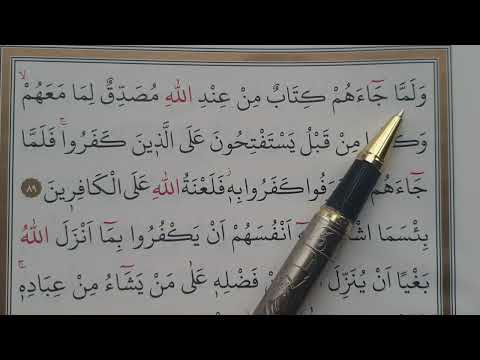 وَلَمَّا جَٓاءَهُمْ كِتَابٌ مِنْ عِنْدِ اللّٰهِ مُصَدِّقٌ لِمَا مَعَهُمْۙ
مِنْ قَبْلُ يَسْتَفْتِحُونَ عَلَى الَّذ۪ينَ كَفَرُواۚ فَلَمَّا
جَٓاءَهُمْ كَفَرُوا بِه۪ۘ فَلَعْنَةُ اللّٰهِ عَلَى الْكَافِر۪ينَ ٨٩
بِئْسَمَا اَنْفُسَهُمْ اَنْ يَكْفُرُوا بِمَٓا اَنْزَلَ اللّٰهُ
بَغْيًا اَنْ يُنَزِّلَ فَضْلِه۪ عَلٰى مَنْ يَشَٓاءُ مِنْ عِبَادِه۪ۚ